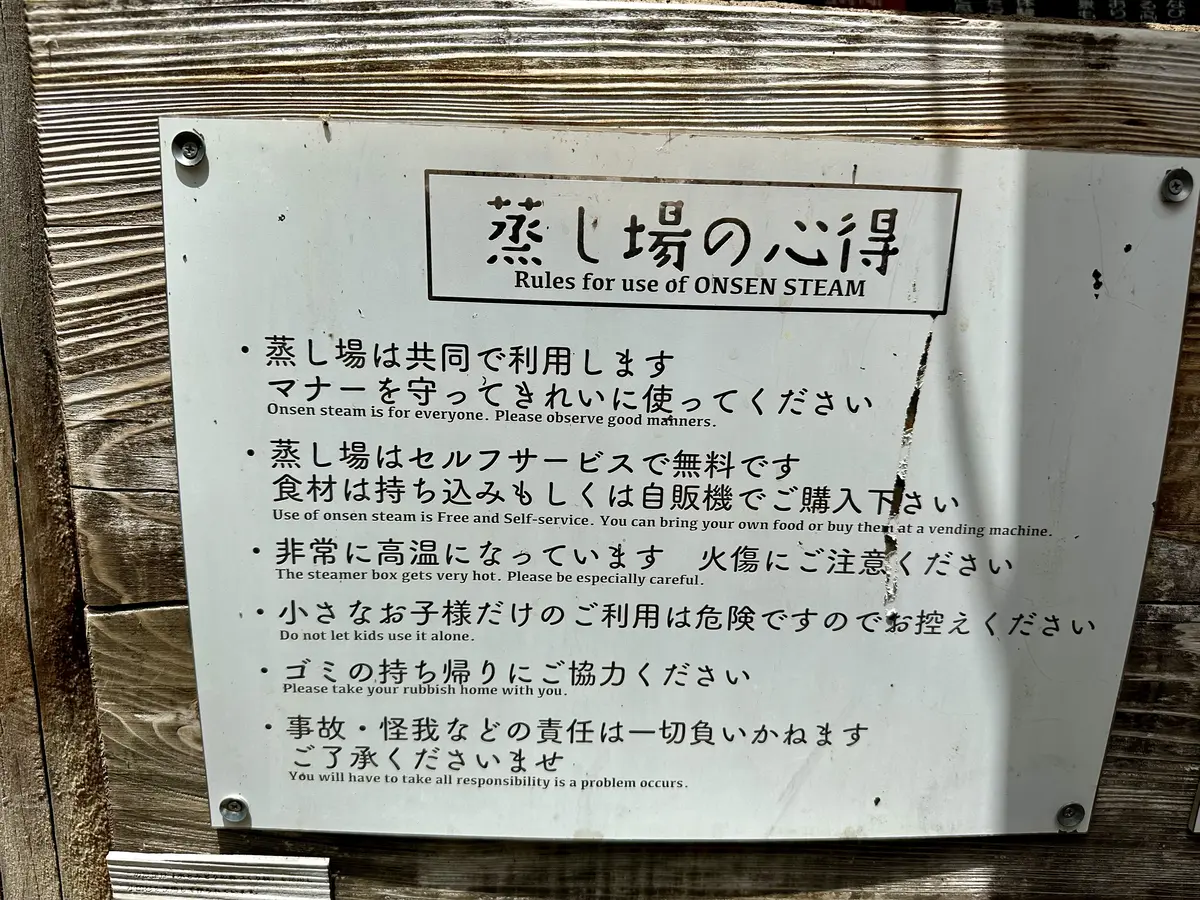 蒸し場の心得
Rules for use of ONSEN STEAM
・蒸し場は共同で利用します
マナーを守ってきれいに使ってください
Onsen steam is for everyone. Please observe good manners.
・蒸し場はセルフサービスで無料です
食材は持ち込みもしくは自販機でご購入下さい
Use of onsen steam is Free and Self-service. You can bring your own food or buy them at a vending machine.
・非常に高温になっています　火傷にご注意ください
The steamer box gets very hot. Please be especially careful.
・小さなお子様だけのご利用は危険ですのでお控えください
Do not let kids use it alone.
・ゴミの持ち帰りにご協力ください
Please take your rubbish home with you.
・事故・怪我などの責任は一切負いかねます
ご了承くださいませ
You will have to take all responsibility is a problem occurs.